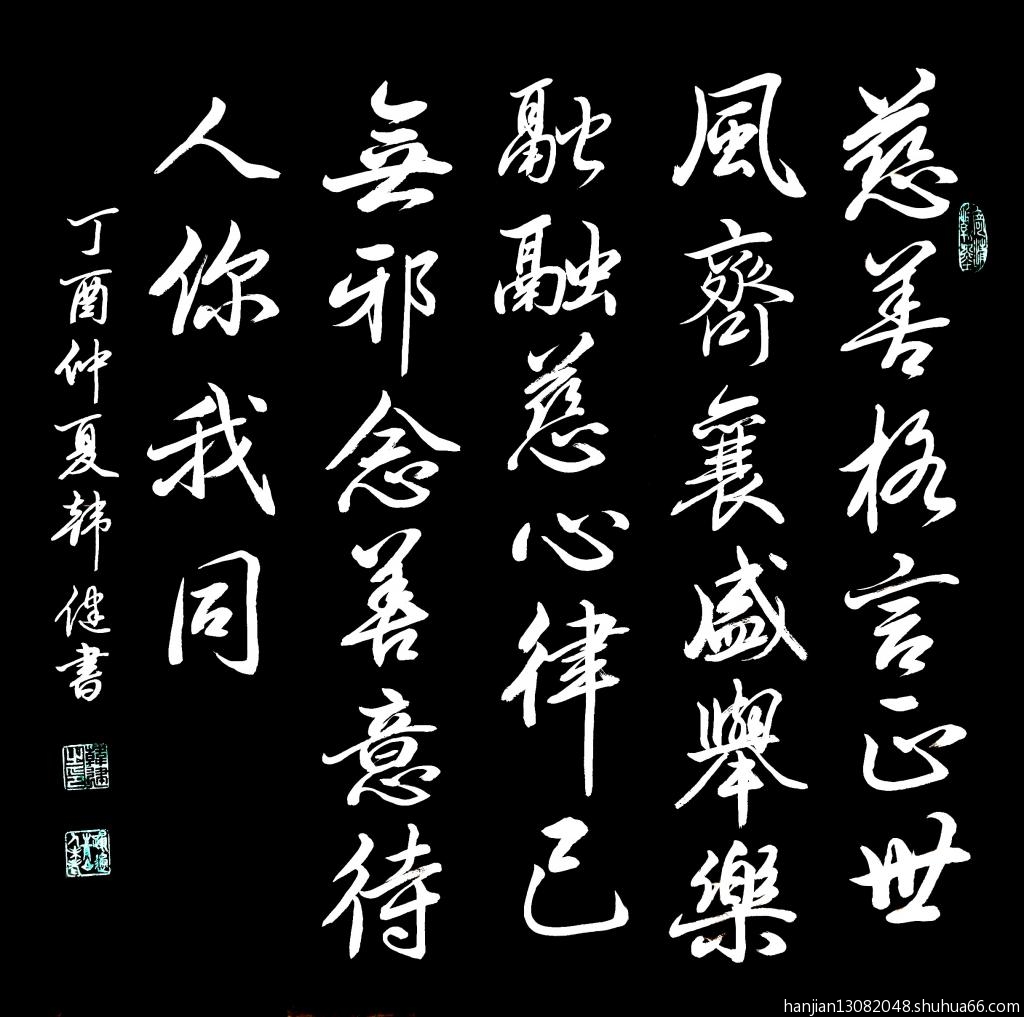 慈善格言正世
風齊襄盛舉樂
融融慈心律己
無邪念善意待
人你我同
丁酉仲夏韩健书
hanjian13082048.shuhua66.com